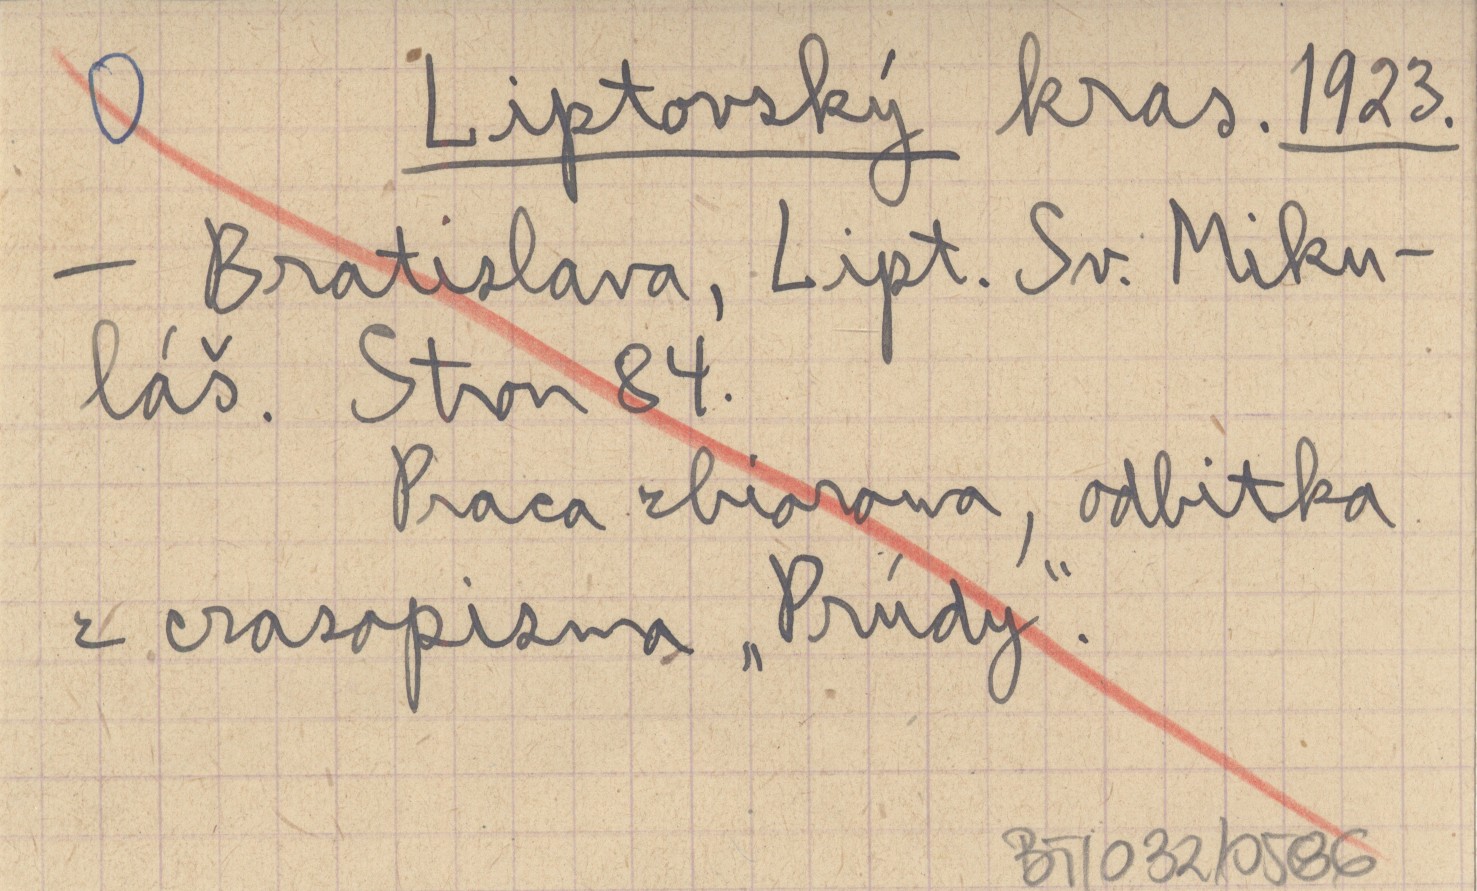 0 Liptovský kras. 1923.
— Bratislava, Lipt. Sv. Miku-
láš. Stron 84.
Praca zbiorowa, odbitka
z czasopisma „Prúdy“.
BT/032/0586